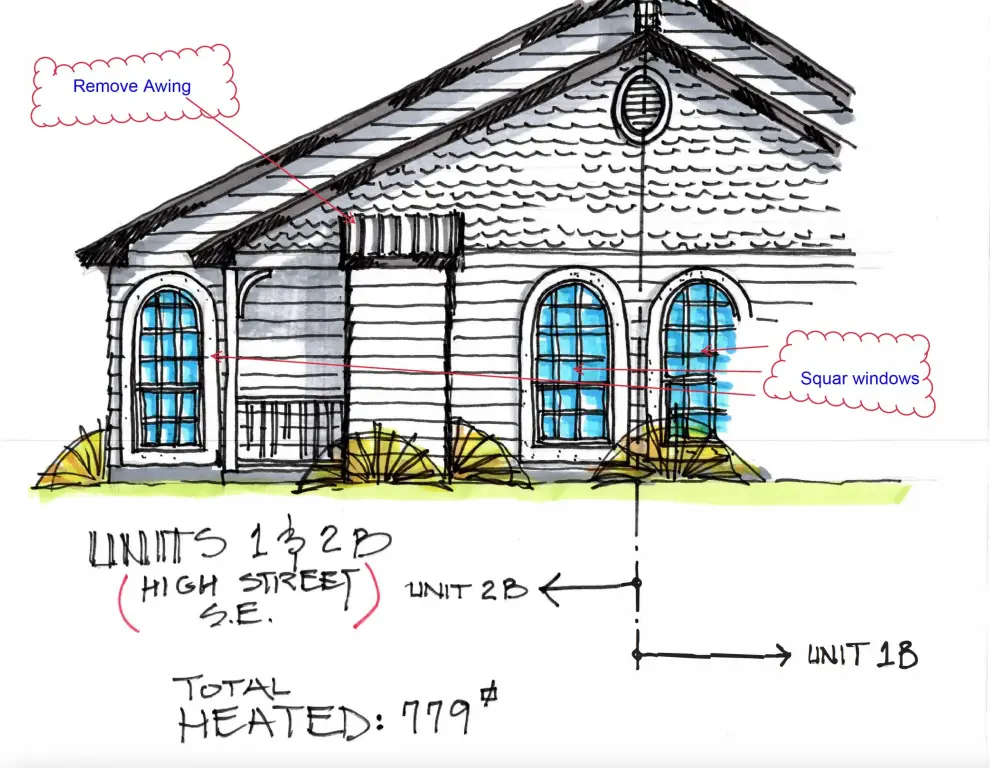 Remove Awing
Squar windows
UNITS 1 & 2B
(HIGH STREET
S.E.)
UNIT 2B
UNIT 1B
TOTAL
HEATED: 779⌗